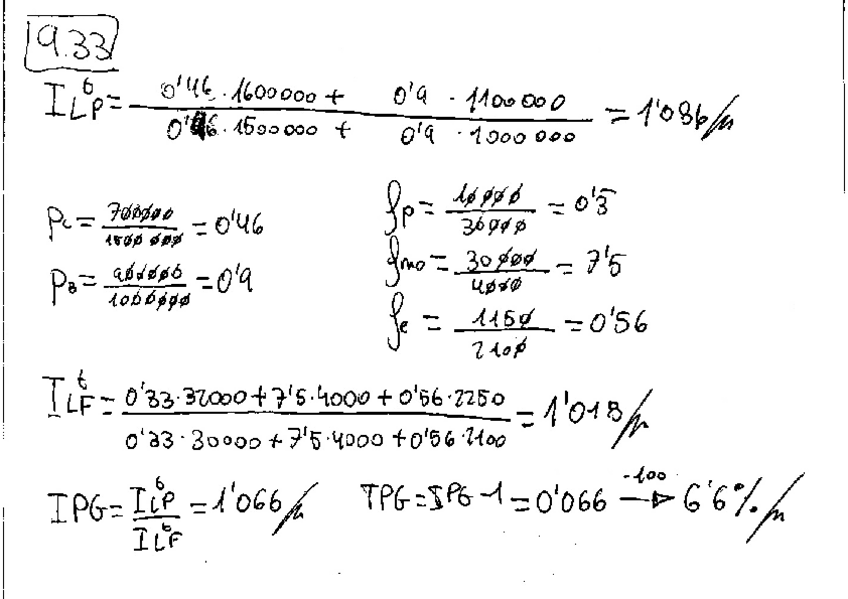 9.33
ILP^t = (0'46 · 1600000 + 0'9 · 1100000) / (0'46 · 1500000 + 0'9 · 1000000) = 1'086//
Pc = 700000 / 1500000 = 0'46
PB = 900000 / 1000000 = 0'9
fp = 10000 / 30000 = 0'3
fmo = 30000 / 4000 = 7'5
fe = 1150 / 2100 = 0'56
ILF^t = (0'33·32000 + 7'5·4000 + 0'56·2250) / (0'33·30000 + 7'5·4000 + 0'56·2100) = 1'018//
IPG = ILP^t / ILF^t = 1'066// TPG = IPG - 1 = 0'066 -100→ 6'6%//